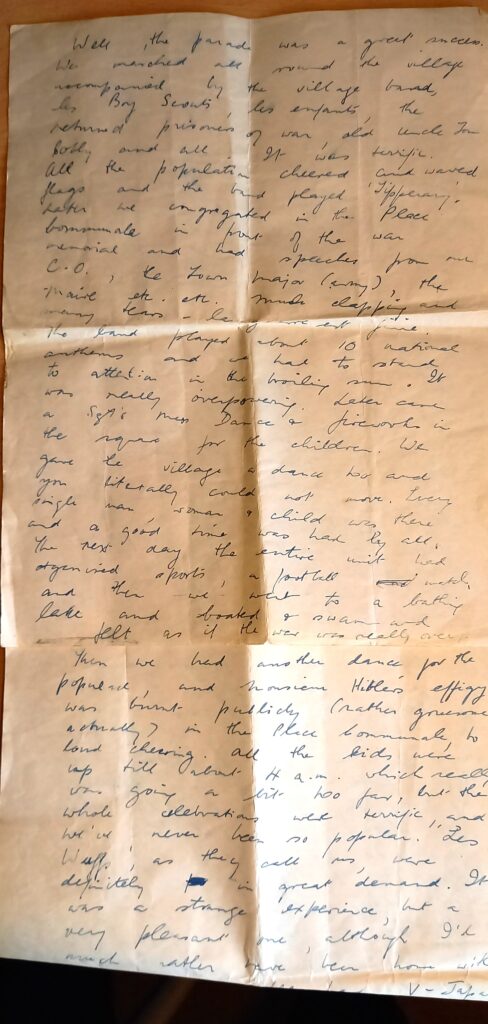 Well, the parade was a great success.
We marched all round the village
accompanied by the village band,
les Boy Scouts, les enfants, the
returned prisoners of war, old Uncle Tom
Cobly and all. It was terrific.
All the population cheered and waved
flags and the band played 'Tipperary'.
Later we congregated in the Place
Communale in front of the war
memorial and had speeches from our
C.O., the Town Major (army), the
Maire etc. etc. Much clapping and
many tears -
The band played about 10 national
anthems and we had to stand
to attention in the boiling sun. It
was really overpowering. Later came
a Sgt's Mess Dance & fireworks in
the square for the children. We
gave the village a dance too and
you literally could not move. Every
single man, woman & child was there
and a good time was had by all.
The next day the entire unit had
organised sports, a football match
and then we went to a bathing
lake and boated & swam and
felt as if the war was really over.
Then we had another dance for the
populace, and Monsieur Hitler's effigy
was burnt publicly (rather gruesome
actually) in the Place Communale, to
loud cheering. All the kids were
up till about 4 a.m. which really
was going a bit too far, but the
whole celebrations were terrific, and
we've never been so popular. 'Les
Waffs', as they call us, were
definitely in great demand. It
was a strange experience, but a
very pleasant one, although I'd
much rather have been home with
V-Japa